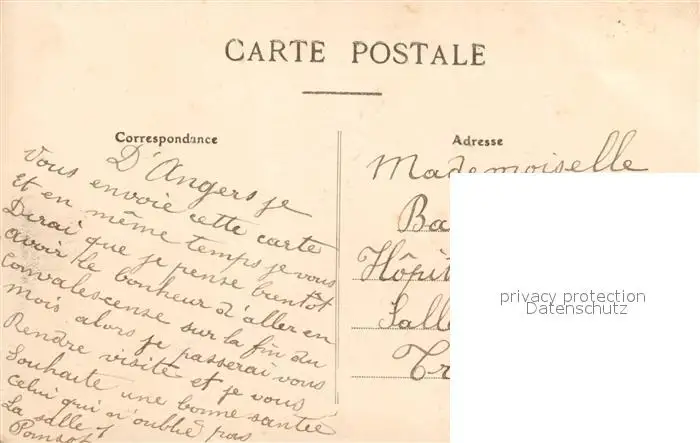 CARTE POSTALE
Correspondance
D'Angers je
Vous envoie cette carte
Et en même temps je vous
Dirai que je pense bientôt
avoir le bonheur d'aller en
convalescense sur la fin du
mois alors je passerai vous
Rendre visite et je vous
Souhaite une bonne santée
celui qui n'oublie pas
La salle 7
Adresse
Mademoiselle
Ba
Hôpit
Salle
Tr
privacy protection
Datenschutz